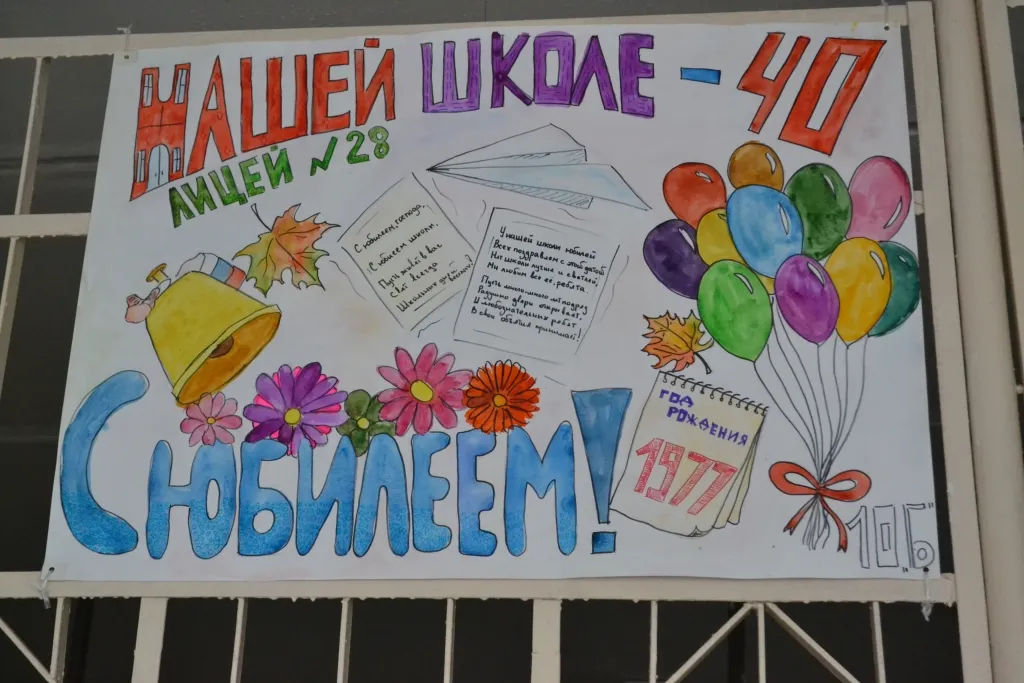 НАШЕЙ ШКОЛЕ - 40
ЛИЦЕЙ №28
С юбилеем, господа,
С юбилеем школы.
Пусть живёт в вас
всегда
Школьный дух весёлый!
У нашей школы юбилей
Всех поздравляем с этой датой
Нет школы лучше и светлей,
Мы любим все её, ребята
Пусть много-много лет подряд
Радушно двери открывает.
И любознательных ребят
В свои объятия принимает!
С ЮБИЛЕЕМ!
ГОД
РОЖДЕНИЯ
1977
10„Б"